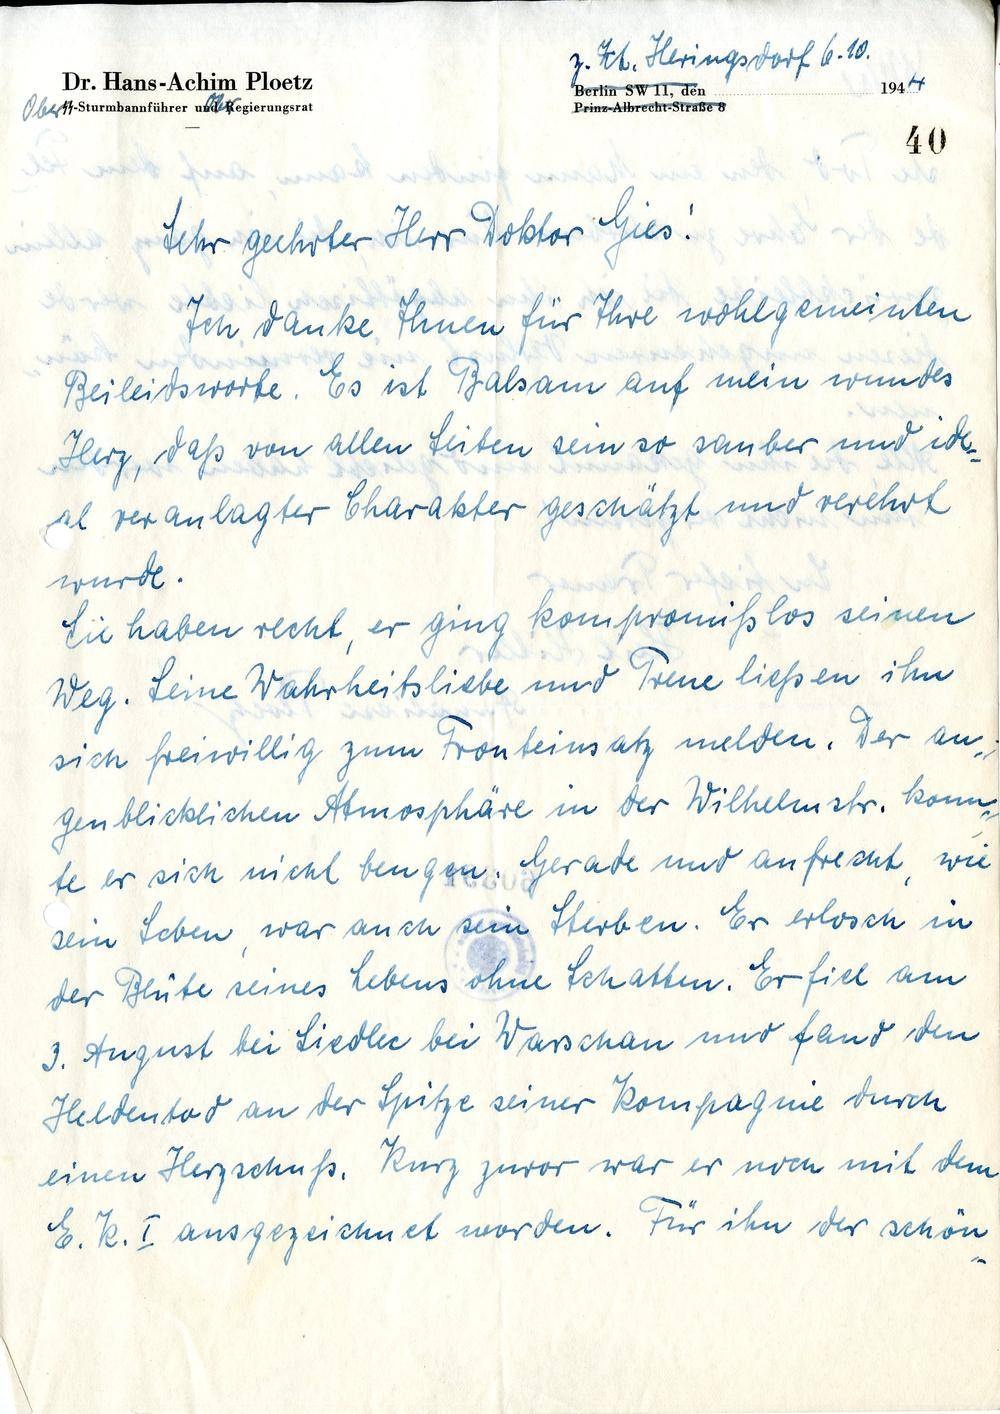 z. Zt. Heringsdorf 6.10.
Dr. Hans-Achim Ploetz
Berlin SW 11, den 1944
Ober ᛋᛋ-Sturmbannführer und Ober Regierungsrat
Prinz-Albrecht-Straße 8
40
Sehr geehrter Herr Doktor Gies!
Ich danke Ihnen für Ihre wohlgemeinten
Beileidsworte. Es ist Balsam auf mein wundes
Herz, daß von allen Seiten sein so sauber und ide-
al veranlagter Charakter geschätzt und verehrt
wurde.
Sie haben recht, er ging kompromißlos seinen
Weg. Seine Wahrheitsliebe und Treue ließen ihn
sich freiwillig zum Fronteinsatz melden. Der au-
genblicklichen Atmosphäre in der Wilhelmstr. konn-
te er sich nicht beugen. Gerade und aufrecht, wie
sein Leben, war auch sein Sterben. Er erlosch in
der Blüte seines Lebens ohne Schatten. Er fiel am
3. August bei Siedlec bei Warschau und fand den
Heldentod an der Spitze seiner Kompagnie durch
einen Herzschuß. Kurz zuvor war er noch mit dem
E. K. I ausgezeichnet worden. Für ihn der schön-